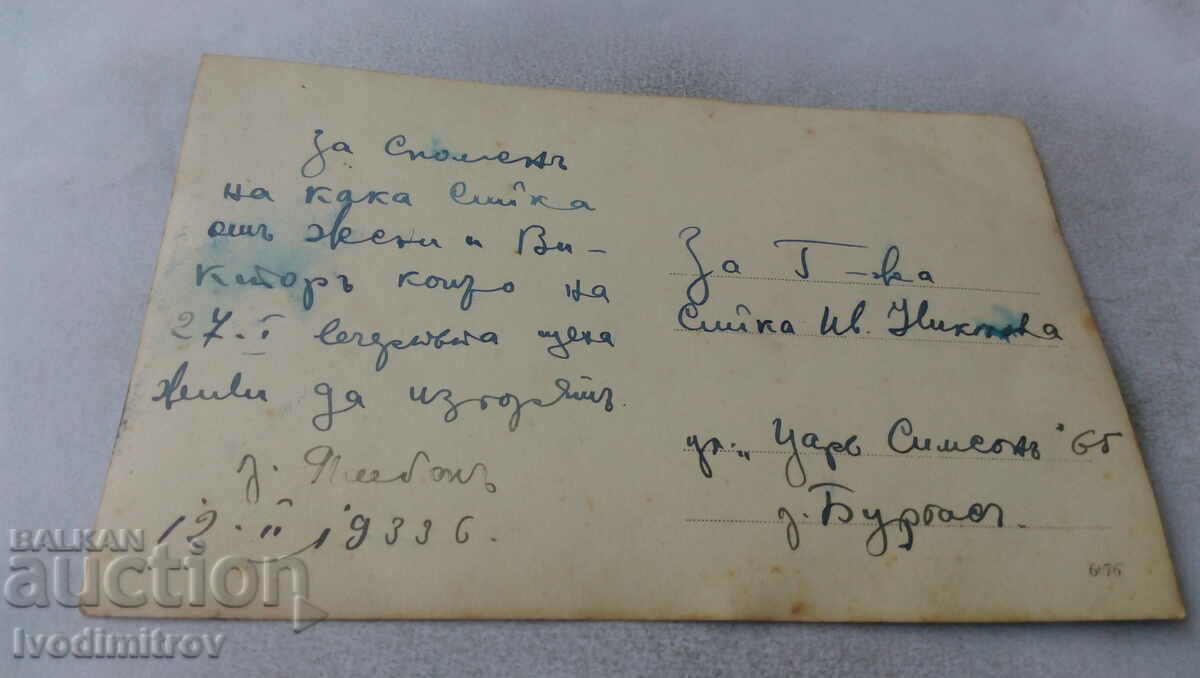 За споменъ
на кака Сийка
отъ Жени и Ви-
кторъ които на
27.I вечерьта щеха
живи да изгорятъ.
г.
12. II 1933 г.
За Г-жа
Сийка Ив. Николова
ул. „Царь Симеонъ" 65
г. Бургасъ.
6·76
BALKAN
auction
Ivodimitrov